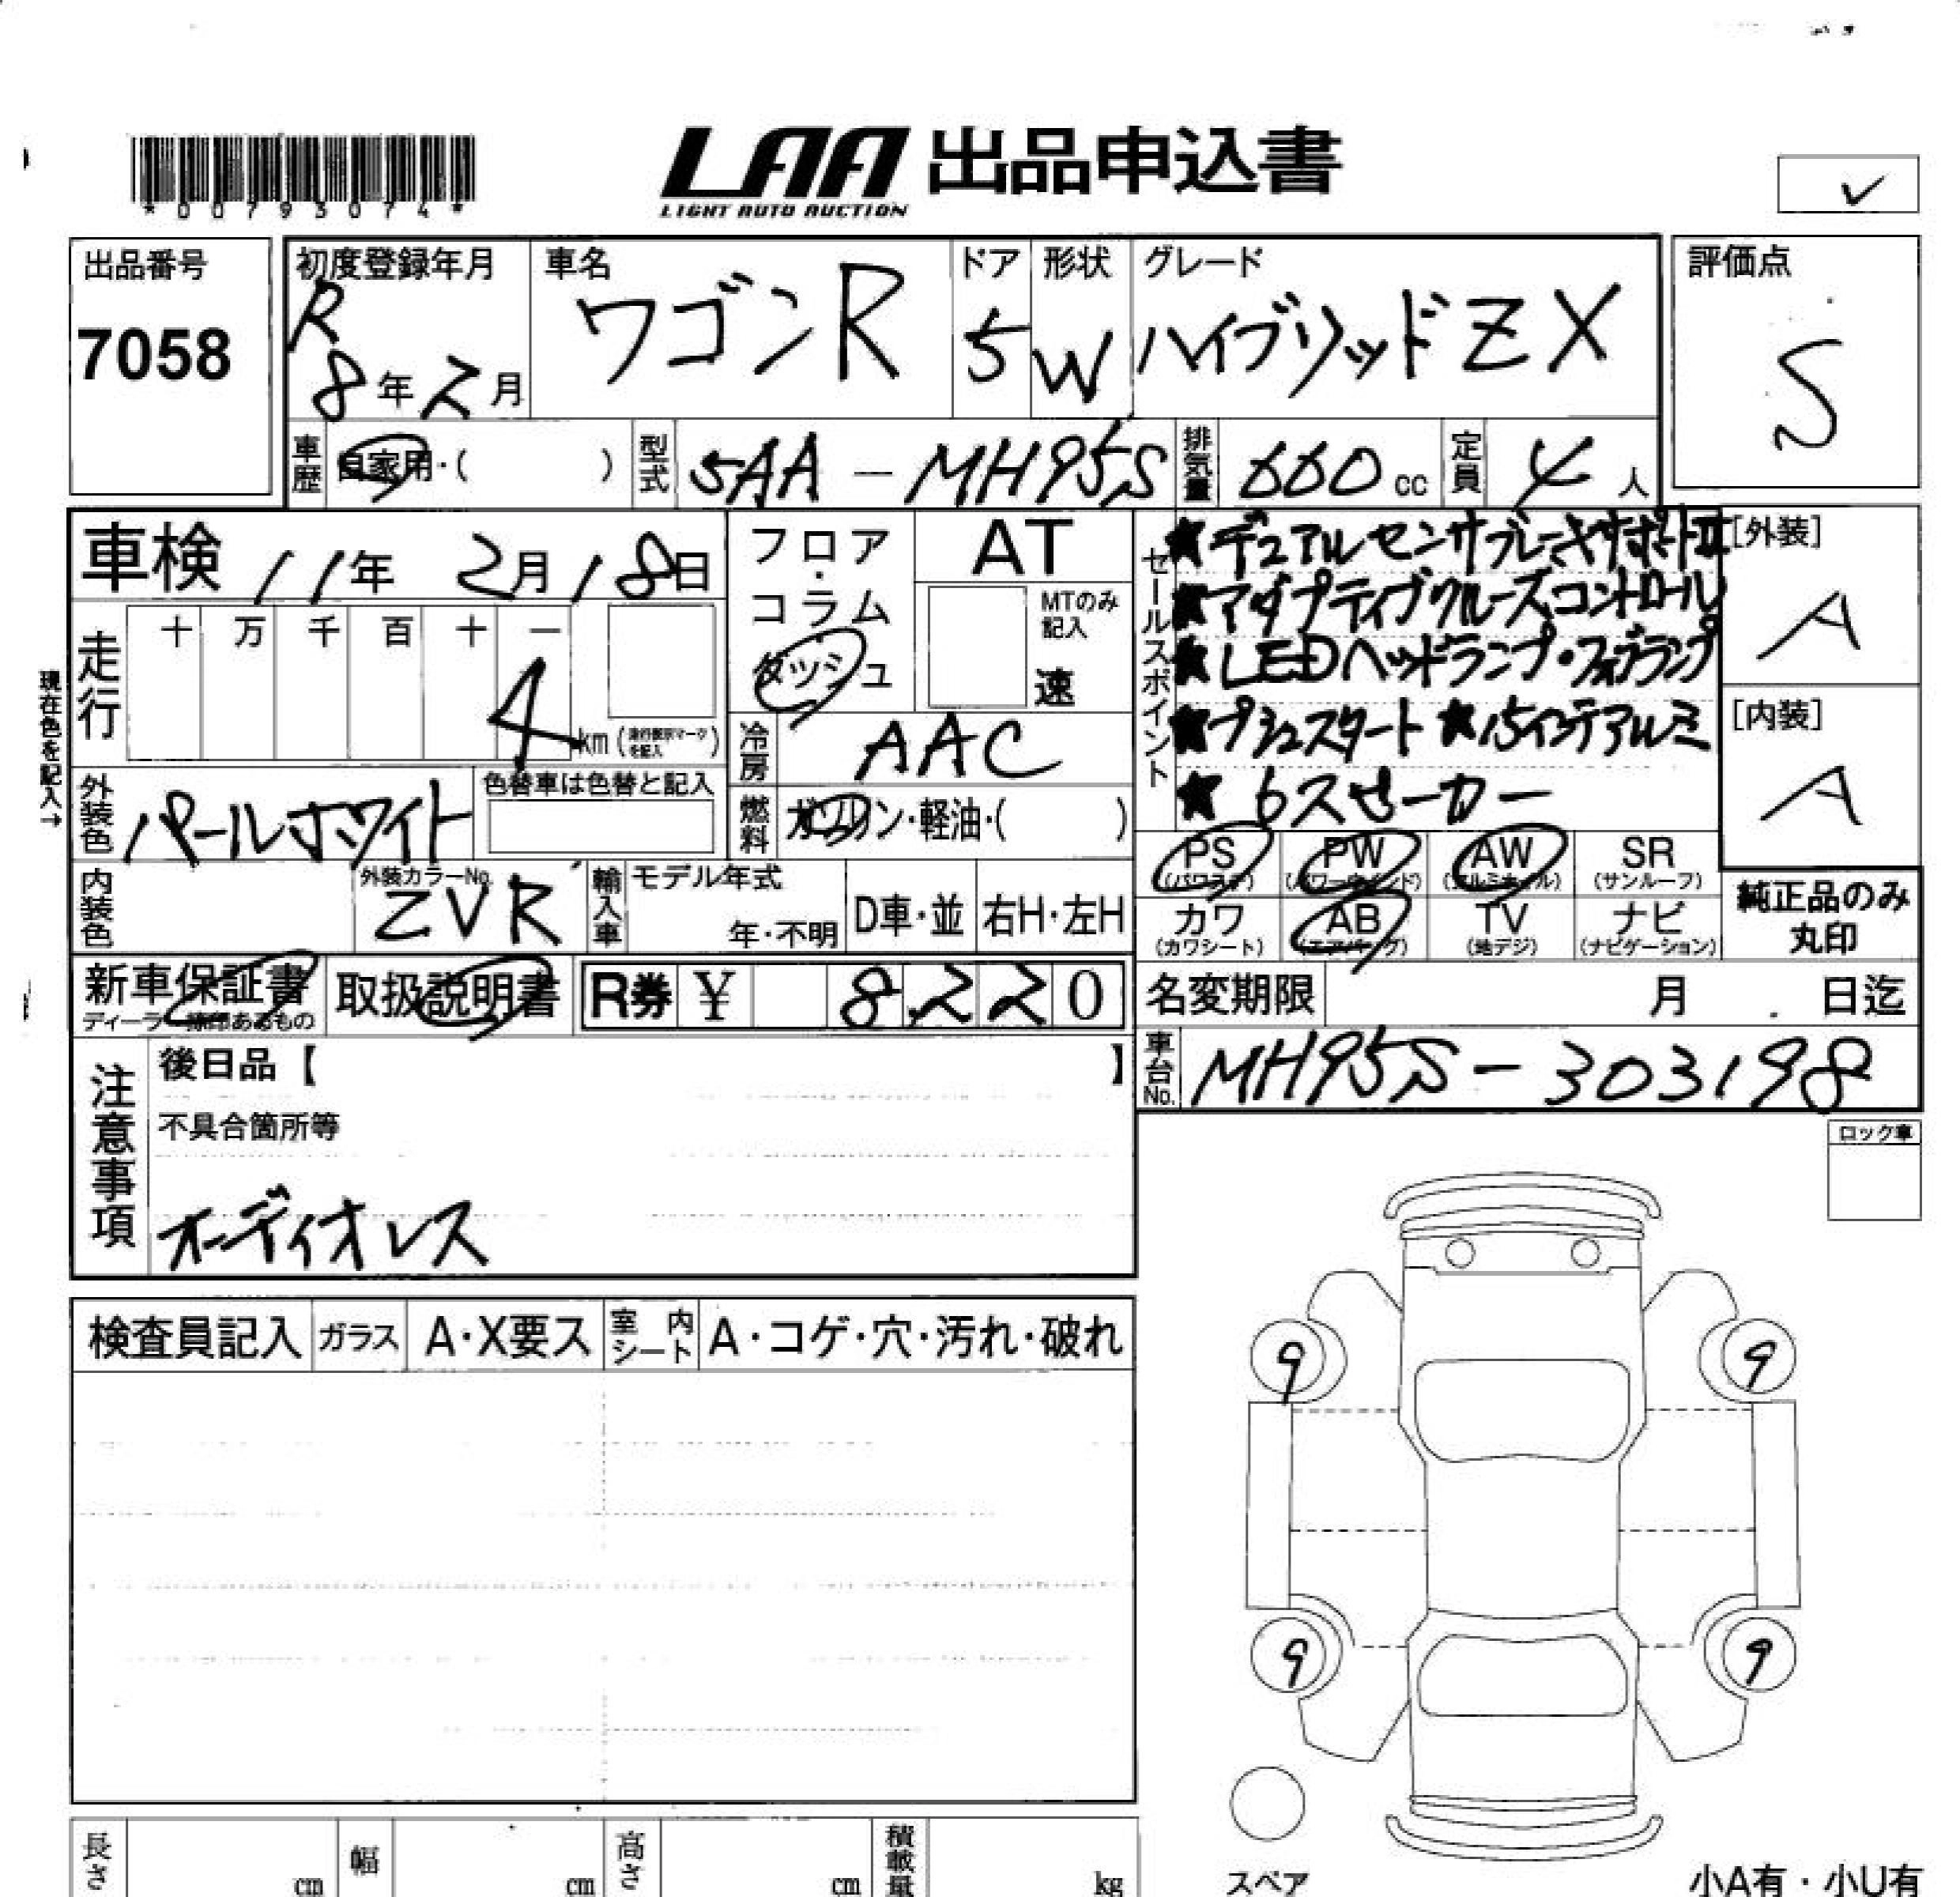 *00793074*
LAA 出品申込書
LIGHT AUTO AUCTION
✓
出品番号
7058
初度登録年月
R
8年2月
車名
ワゴンR
ドア
5
形状
W
グレード
ハイブリッドZX
評価点
S
車歴
自家用・( )
型式
5AA-MH95S
排気量
660cc
定員
4人
車検 11年 2月18日
フロア・コラム
ダッシュ
AT
MTのみ記入
速
セールスポイント
★デュアルセンサブレーキサポートⅡ
★アダプティブクルーズコントロール
★LEDヘッドランプ・フォグランプ
★プッシュスタート ★15インチアルミ
★6スピーカー
[外装]
A
[内装]
A
現在色を記入→
走行
十 万 千 百 十 一
4 km(走行表示マークを記入)
冷房
AAC
外装色
パールホワイト
色替車は色替と記入
燃料
ガソリン・軽油・( )
PS
(パワステ)
PW
(パワーウインド)
AW
(アルミホイル)
SR
(サンルーフ)
カワ
(カワシート)
AB
(エアバッグ)
TV
(地デジ)
ナビ
(ナビゲーション)
純正品のみ
丸印
内装色
外装カラーNo.
ZVR
輸入車
モデル年式
年・不明
D車・並
右H・左H
新車保証書
ディーラー捺印あるもの
取扱説明書
R券 ¥ 8,220
名変期限 月 日迄
車台No.
MH95S-303198
注意事項
後日品【 】
不具合箇所等
オーディオレス
ロック車
検査員記入
ガラス
A・X要ス
室内シート
A・コゲ・穴・汚れ・破れ
9
9
9
9
スペア
小A有・小U有
長さ cm
幅 cm
高さ cm
積載量 kg